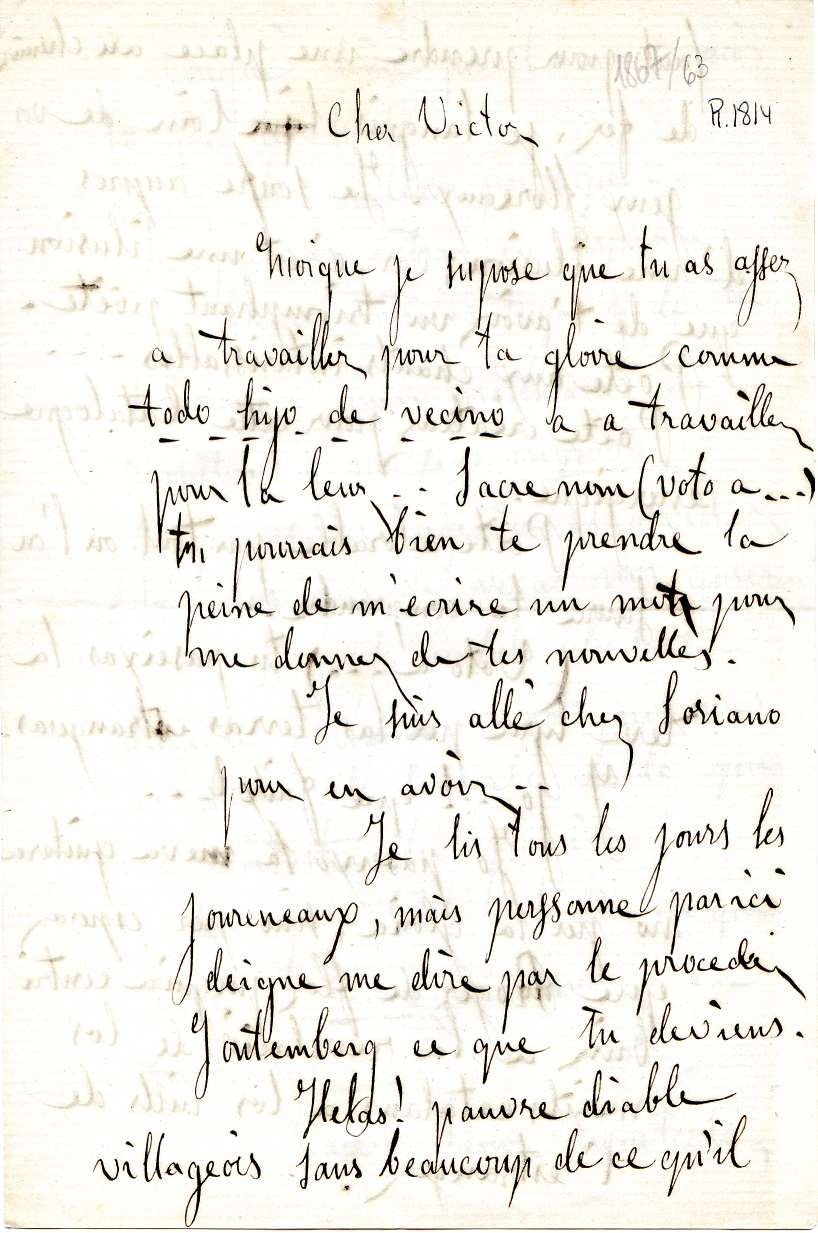 1867/63
R.1814
Cher Victor
Moique je supose que tu as assez
a travailler pour ta gloire comme
todo hijo de vecino a a travailler
pour la leur... Sacre nom (voto a...)
tu pourrais bien te prendre la
peine de m'ecrire un mot pour
me donner de tes nouvelles.
Je suis allé chez Soriano
pour en avoir...
Je lis tous les jours les
joureneaux, mais perssonne par ici
deigne me dire par le proceder
Joutemberg ce que tu deviens.
Helas! pauvre diable
villageois sans beaucoup de ce qu'il